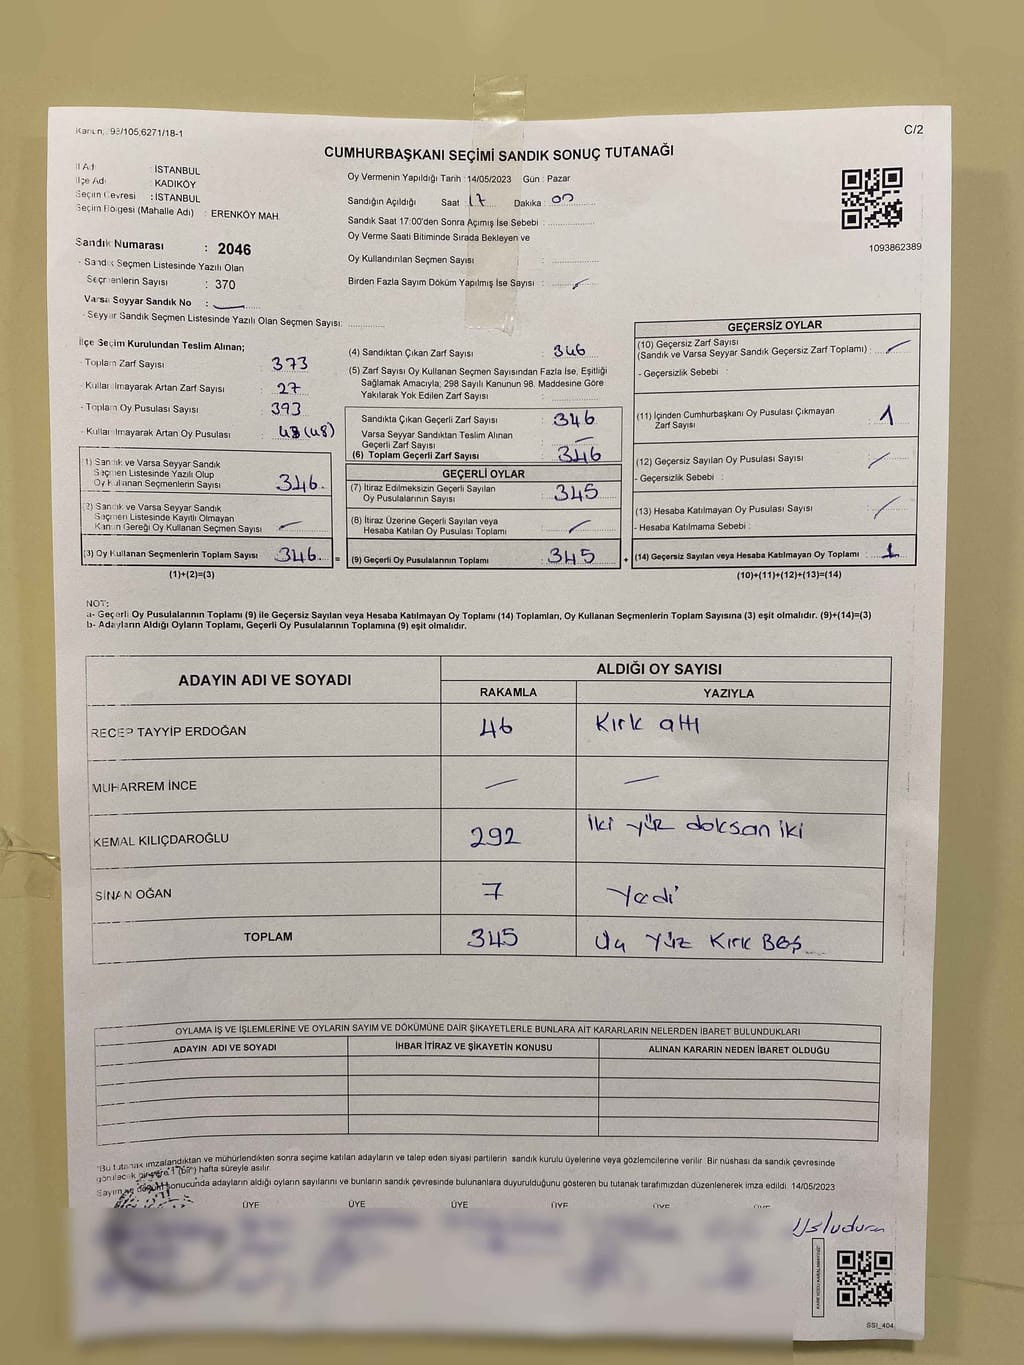 Kanun: 98/105,6271/18-1
C/2
CUMHURBAŞKANI SEÇİMİ SANDIK SONUÇ TUTANAĞI
İl Adı : İSTANBUL
İlçe Adı : KADIKÖY
Seçim Çevresi : İSTANBUL
Seçim Bölgesi (Mahalle Adı) : ERENKÖY MAH.
Sandık Numarası : 2046
- Sandık Seçmen Listesinde Yazılı Olan
Seçmenlerin Sayısı : 370
Varsa Seyyar Sandık No :
- Seyyar Sandık Seçmen Listesinde Yazılı Olan Seçmen Sayısı:
Oy Vermenin Yapıldığı Tarih : 14/05/2023 Gün : Pazar
Sandığın Açıldığı Saat : 17 Dakika : 00
Sandık Saat 17:00'den Sonra Açımış İse Sebebi :
Oy Verme Saati Bitiminde Sırada Bekleyen ve
Oy Kullandırılan Seçmen Sayısı :
Birden Fazla Sayım Döküm Yapılmış İse Sayısı :
1093862389
İlçe Seçim Kurulundan Teslim Alınan;
- Toplam Zarf Sayısı : 373
- Kullanılmayarak Artan Zarf Sayısı : 27
- Toplam Oy Pusulası Sayısı : 393
- Kullanılmayarak Artan Oy Pusulası : 48 (48)
(1) Sandık ve Varsa Seyyar Sandık
Seçmen Listesinde Yazılı Olup
Oy Kullanan Seçmenlerin Sayısı : 346
(2) Sandık ve Varsa Seyyar Sandık
Seçmen Listesinde Kayıtlı Olmayan
Kanun Gereği Oy Kullanan Seçmen Sayısı :
(3) Oy Kullanan Seçmenlerin Toplam Sayısı : 346 =
(1)+(2)=(3)
(4) Sandıktan Çıkan Zarf Sayısı : 346
(5) Zarf Sayısı Oy Kullanan Seçmen Sayısından Fazla İse, Eşitliği
Sağlamak Amacıyla; 298 Sayılı Kanunun 98. Maddesine Göre
Yakılarak Yok Edilen Zarf Sayısı :
Sandıkta Çıkan Geçerli Zarf Sayısı : 346
Varsa Seyyar Sandıktan Teslim Alınan
Geçerli Zarf Sayısı :
(6) Toplam Geçerli Zarf Sayısı : 346
GEÇERLİ OYLAR
(7) İtiraz Edilmeksizin Geçerli Sayılan
Oy Pusulalarının Sayısı : 345
(8) İtiraz Üzerine Geçerli Sayılan veya
Hesaba Katılan Oy Pusulası Toplamı :
(9) Geçerli Oy Pusulalarının Toplamı : 345 +
GEÇERSİZ OYLAR
(10) Geçersiz Zarf Sayısı
(Sandık ve Varsa Seyyar Sandık Geçersiz Zarf Toplamı) :
- Geçersizlik Sebebi :
(11) İçinden Cumhurbaşkanı Oy Pusulası Çıkmayan
Zarf Sayısı : 1
(12) Geçersiz Sayılan Oy Pusulası Sayısı :
- Geçersizlik Sebebi :
(13) Hesaba Katılmayan Oy Pusulası Sayısı :
- Hesaba Katılmama Sebebi :
(14) Geçersiz Sayılan veya Hesaba Katılmayan Oy Toplamı : 1
(10)+(11)+(12)+(13)=(14)
NOT:
a- Geçerli Oy Pusulalarının Toplamı (9) ile Geçersiz Sayılan veya Hesaba Katılmayan Oy Toplamı (14) Toplamları, Oy Kullanan Seçmenlerin Toplam Sayısına (3) eşit olmalıdır. (9)+(14)=(3)
b- Adayların Aldığı Oyların Toplamı, Geçerli Oy Pusulalarının Toplamına (9) eşit olmalıdır.
ADAYIN ADI VE SOYADI
ALDIĞI OY SAYISI
RAKAMLA YAZIYLA
RECEP TAYYİP ERDOĞAN 46 Kırk altı
MUHARREM İNCE
KEMAL KILIÇDAROĞLU 292 iki yüz doksan iki
SİNAN OĞAN 7 Yedi
TOPLAM 345 Üç Yüz Kırk Beş
OYLAMA İŞ VE İŞLEMLERİNE VE OYLARIN SAYIM VE DÖKÜMÜNE DAİR ŞİKAYETLERLE BUNLARA AİT KARARLARIN NELERDEN İBARET BULUNDUKLARI
ADAYIN ADI VE SOYADI İHBAR İTİRAZ VE ŞİKAYETİN KONUSU ALINAN KARARIN NEDEN İBARET OLDUĞU
"Bu tutanak imzalandıktan ve mühürlendikten sonra seçime katılan adayların ve talep eden siyasi partilerin sandık kurulu üyelerine veya gözlemcilerine verilir Bir nüshası da sandık çevresinde
görülecek bir yere 1 (bir) hafta süreyle asılır.
Sayım ve döküm sonucunda adayların aldığı oyların sayılarını ve bunların sandık çevresinde bulunanlara duyurulduğunu gösteren bu tutanak tarafımızdan düzenlenerek imza edildi. 14/05/2023
ÜYE ÜYE ÜYE ÜYE ÜYE ÜYE
SSI_404